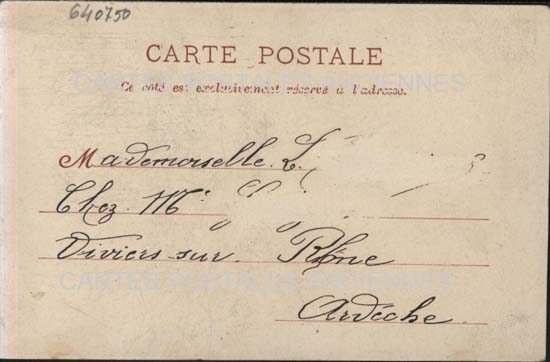 640750
CARTE POSTALE
CARTES POSTALES ANCIENNES
Ce côté est exclusivement réservé à l'adresse.
Mademoiselle L.
Chez Mr
Viviers-sur-Rhône
CARTES POSTALES ANCIENNES
Ardèche